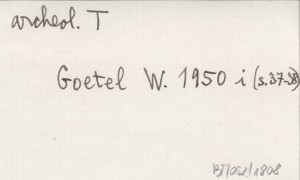 archeol. T
Goetel W. 1950 i (s. 37-38)
BJ/Osz/1808